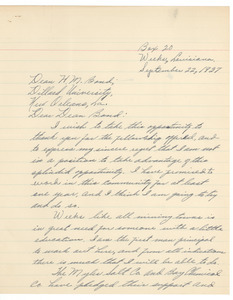 Box 20
Weeks, Louisiana,
September 22, 1937
Dean H. M. Bond,
Dillard University,
New Orleans, La.
Dear Dean Bond:
I wish to take this opportunity to
thank you for the fellowship offered, and to
express my sincere regret that I am not
in a position to take advantage of this
splendid opportunity. I have promised to
work in this community for at least
one year, and I think I am going to try
and do so.
Weeks like all mining towns is
in great need for someone with a little
education. I am the first man principal
to work out here, and from all indications
there is much that I will be able to do.
The Myles Salt Co. and Bay Chemical
Co. have pledged their support and